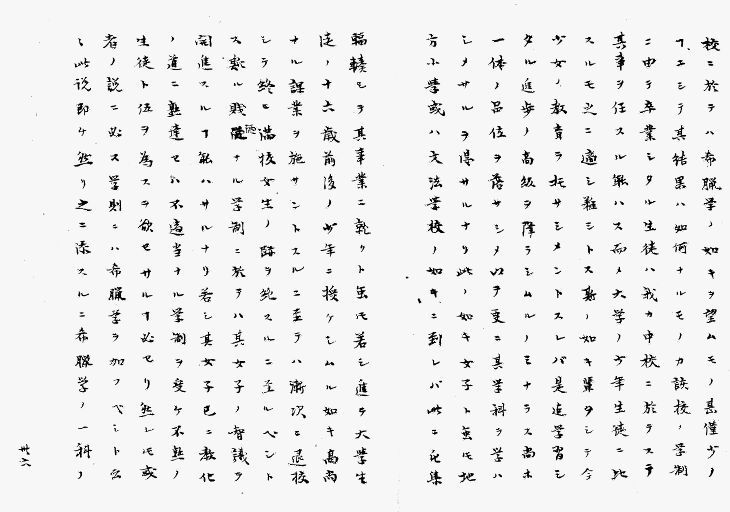 校ニ於テハ希臘学ノ如キヲ望ムモノ甚僅少ノ
ヿニシテ其結果ハ如何ナルモノカ該校ノ学制
ニ由テ卒業シタル生徒ハ我カ中校ニ於テスラ
其事ヲ任スル能ハス而メ大学ノ少年生徒ニ比
スルモ之ニ適シ難シトス斯ノ如キ輩タシテ今
少女ノ教育ヲ托サシメントスレバ是迠学習シ
タル進歩ノ高級ヲ降ラシムルノミナラス尚ホ
一体ノ品位ヲ落サシメ以ヲ更ニ其学科ヲ学ハ
シメサルヲ得サルナリ此ノ如キ女子ト虽モ地
方小学或ハ文法学校ノ如キニ到レバ此ニ屯集
輻轃シテ其事業ニ就クト虽モ若シ進テ大学生
徒ノ十六歳前後ノ少年ニ授ケシムル如キ高尚
ナル課業ヲ施サントスルニ至テハ漸次ニ退校
シテ終ニ満校女生ノ跡ヲ絶スルニ至ルベント
ス歎ル賤ナル学制ニ於テハ其女子ノ智識ヲ
開進スルヿ能ハサルナリ若シ其女子已ニ教化
ノ道ニ熟達セハ不適当ナル学制ヲ受ケ不熟ノ
生徒ト伍ヲ為スヲ欲セサルヿ必セリ然レモ或
者ノ説ニ必ス学則ニハ希臘学ヲ加フベシト云
ヽ此説即ケ然リ之ニ添スルニ希臘学ノ一科ノ
丗六